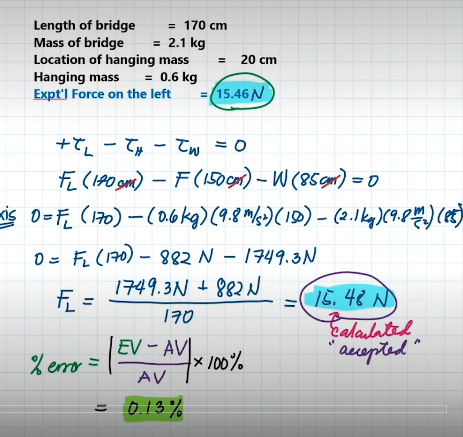 Length of bridge = 170 cm
Mass of bridge = 2.1 kg
Location of hanging mass = 20 cm
Hanging mass = 0.6 kg
Expt'l Force on the left = 15.46 N
+τ_L − τ_H − τ_W = 0
F_L (170 cm) − F (150 cm) − W (85 cm) = 0
xis 0 = F_L (170) − (0.6 kg)(9.8 m/s²)(150) − (2.1 kg)(9.8 m/s²)(85)
0 = F_L (170) − 882 N − 1749.3N
F_L = (1749.3N + 882 N) / 170 = 15.48 N
calculated
"accepted"
% error = |EV − AV / AV| × 100%
= 0.13%